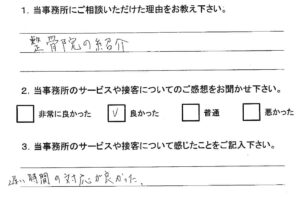 1. 当事務所にご相談いただけた理由をお教え下さい。
整骨院の紹介
2. 当事務所のサービスや接客についてのご感想をお聞かせ下さい。
非常に良かった ✓ 良かった 普通 悪かった
3. 当事務所のサービスや接客について感じたことをご記入下さい。
遅い時間の対応が良かった。